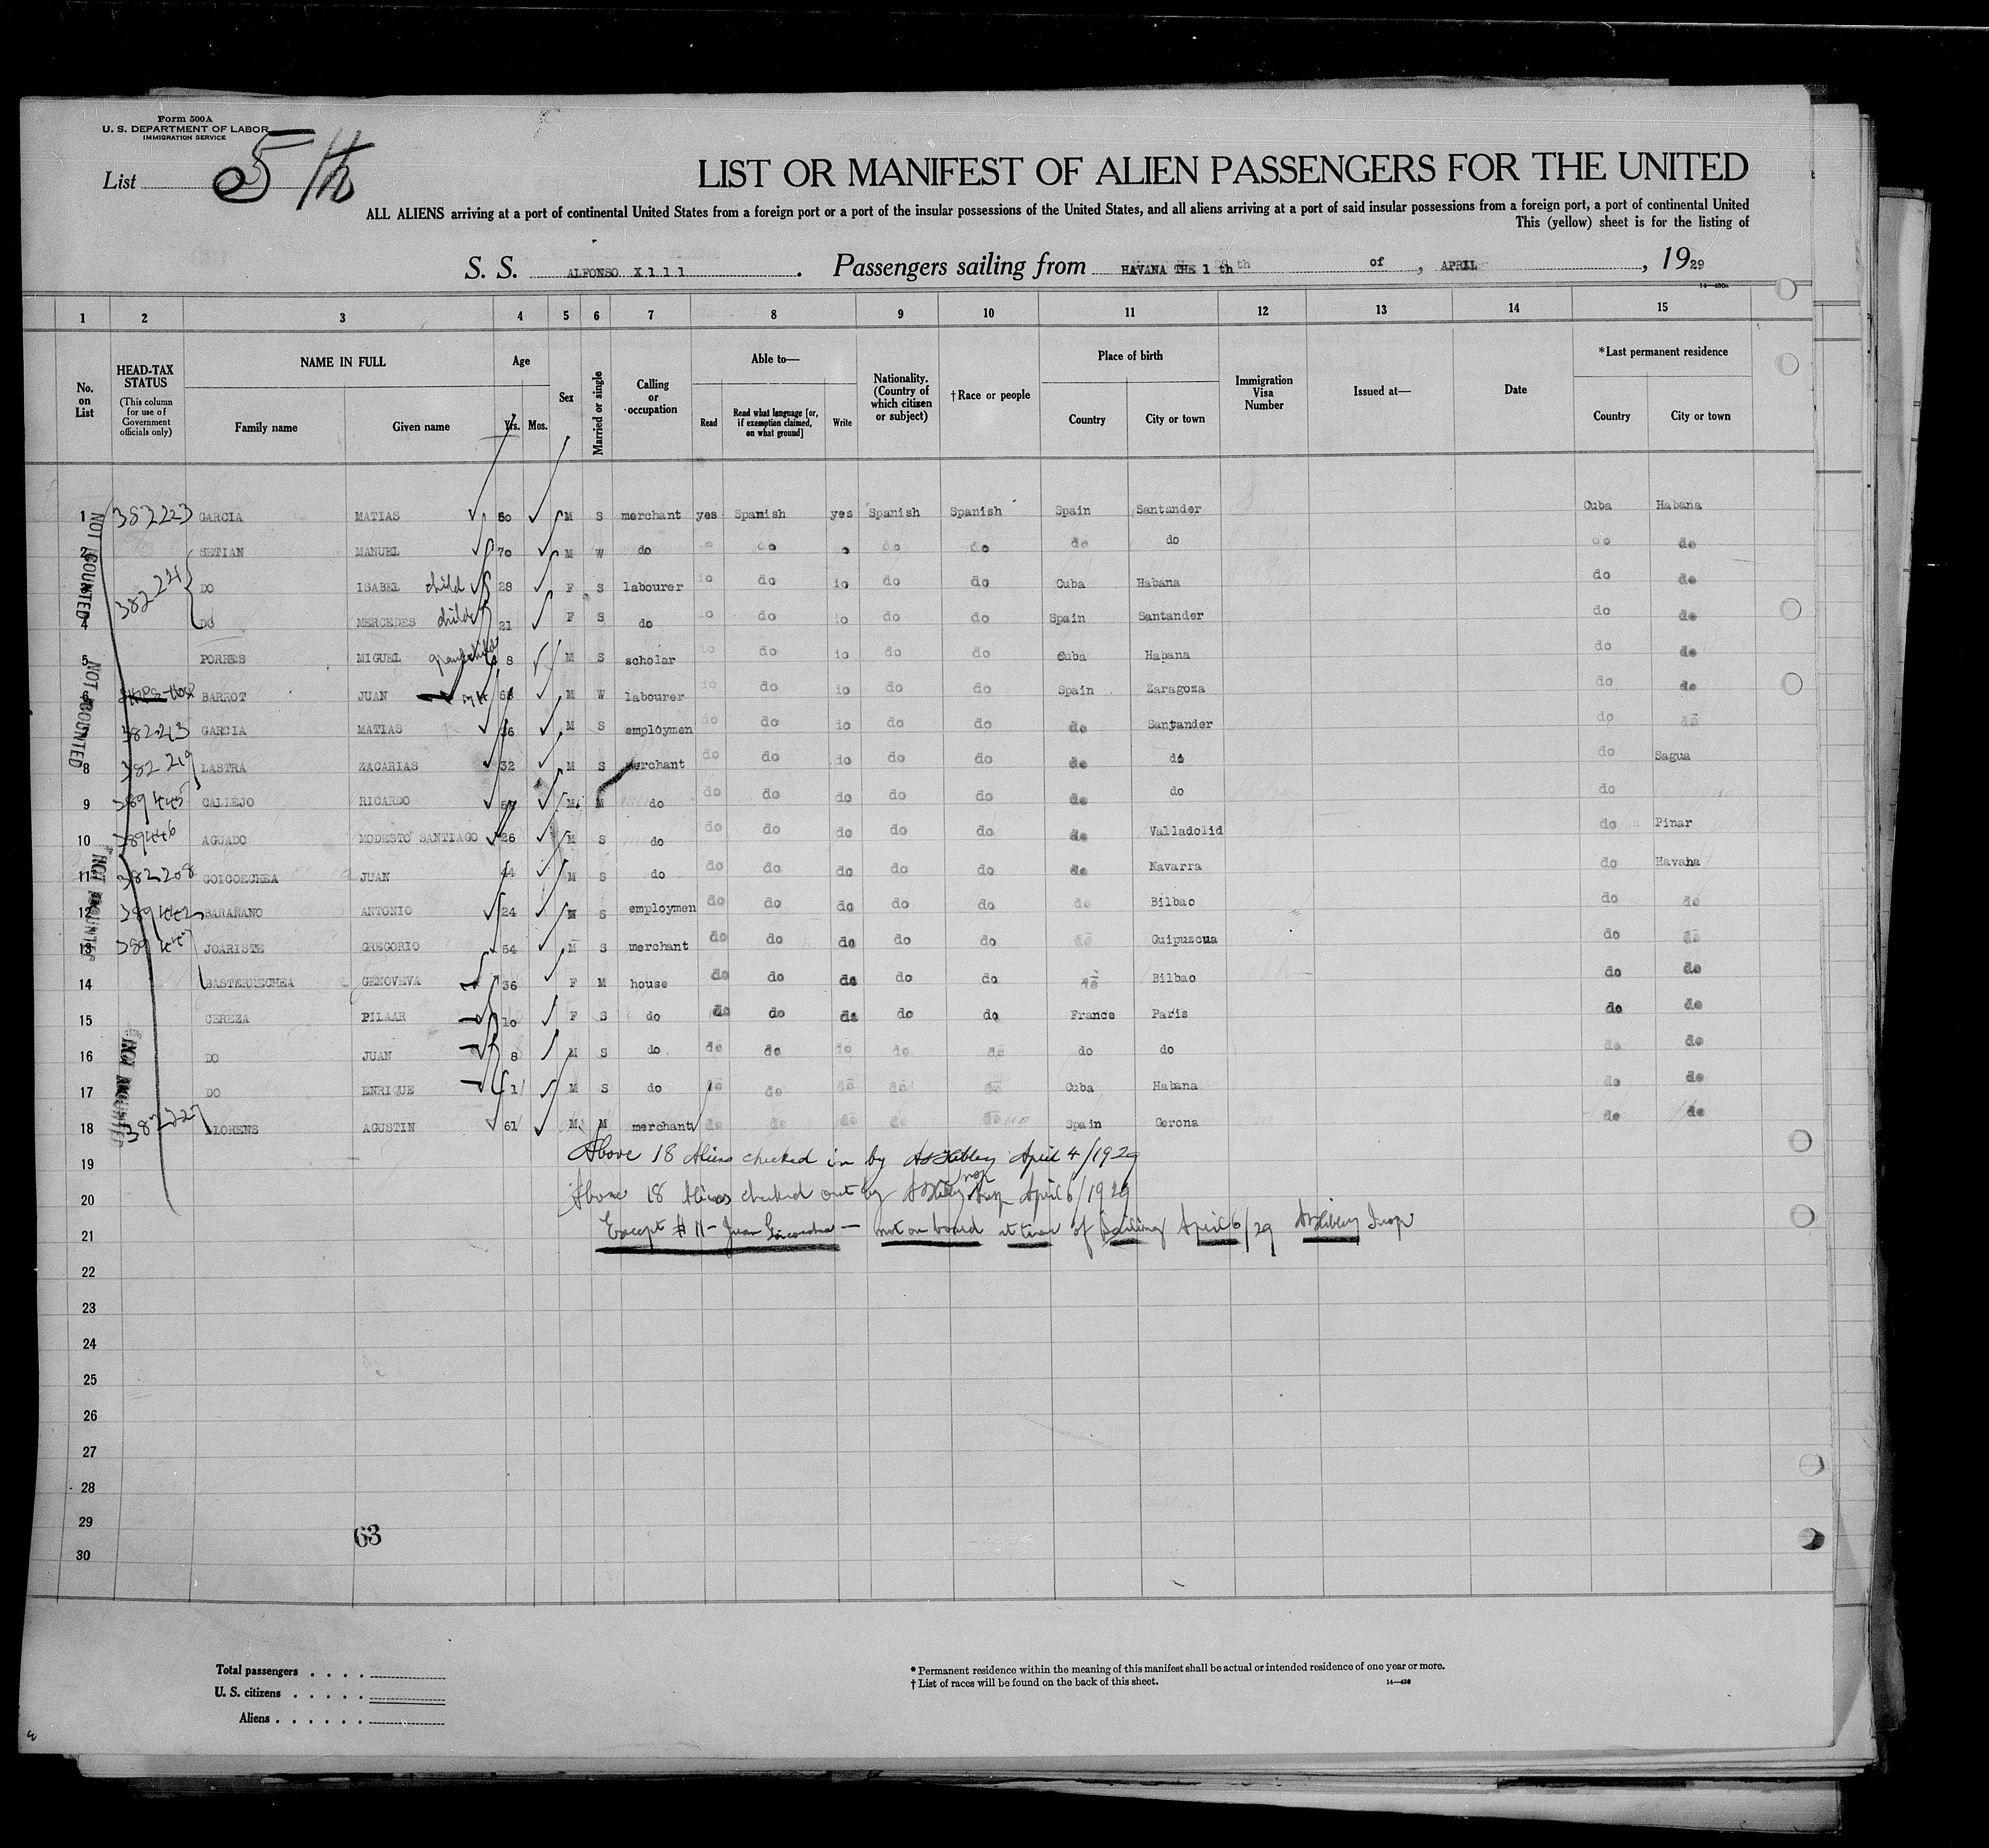 Form 500A
U. S. DEPARTMENT OF LABOR
IMMIGRATION SERVICE
List 5 th
LIST OR MANIFEST OF ALIEN PASSENGERS FOR THE UNITED
ALL ALIENS arriving at a port of continental United States from a foreign port or a port of the insular possessions of the United States, and all aliens arriving at a port of said insular possessions from a foreign port, a port of continental United
This (yellow) sheet is for the listing of
S. S. ALFONSO X111 . Passengers sailing from HAVANA THE 1 th of , APRIL , 1929
1 2 3 4 5 6 7 8 9 10 11 12 13 14 15
No. on List
HEAD-TAX STATUS
(This column for use of Government officials only)
NAME IN FULL
Family name Given name
Age
Yrs. Mos.
Sex
Married or single
Calling or occupation
Able to—
Read
Read what language [or, if exemption claimed, on what ground]
Write
Nationality. (Country of which citizen or subject)
†Race or people
Place of birth
Country City or town
Immigration Visa Number
Issued at—
Date
*Last permanent residence
Country City or town
1 382223 GARCIA MATIAS 50 M S merchant yes Spanish yes Spanish Spanish Spain Santander Cuba Habana
2 SETIAN MANUEL 70 M W do do do do do do do do
3 DO ISABEL child 28 F S labourer do do do do Cuba Habana do do
4 DO MERCEDES child 21 F S do do do do Spain Santander do do
5 PORRES MIGUEL grandchild 8 M S scholar do do do Cuba Habana do do
6 BARROT JUAN M W labourer do do do do Spain Zaragoza do do
7 GARCIA MATIAS 36 M S employmen do do do do Santander do do
8 382219 LASTRA ZACARIAS 32 M S merchant do do do do do do do do Sagua
9 389445 CALLEJO RICARDO 57 M M do do do do do do do do do
10 389446 AGUADO MODESTO SANTIAGO 26 M S do do do do do do do Valladolid do Pinar
11 382208 GOICOECHEA JUAN 44 M S do do do do do do do Navarra do Havana
12 389442 BARAÑANO ANTONIO 24 M S employmen do do do do do do Bilbao do do
13 JOARISTE GREGORIO 54 M S merchant do do do do do do Guipuzcua do do
14 BASTERRECHEA GENOVEVA 36 F M house do do do do do do Bilbao do do
15 CEREZA PILAAR 10 F S do do do do do do France Paris do do
16 DO JUAN 8 M S do do do do do do do do do do
17 DO ENRIQUE 1 M S do do do do do do Cuba Habana do do
18 382227 LLORENS AGUSTIN 61 M M merchant do do do do do Spain Gerona do do
NOT COUNTED
NOT COUNTED
19 Above 18 Aliens checked in by April 4/1929
20 Above 18 Aliens checked out by Insp April 6/1929
21 Except # 11 - Juan Goicoechea — not on board at time of Sailing April 6/29 Insp
22
23
24
25
26
27
28
29
30
63
Total passengers
U. S. citizens
Aliens
* Permanent residence within the meaning of this manifest shall be actual or intended residence of one year or more.
† List of races will be found on the back of this sheet.
14—430